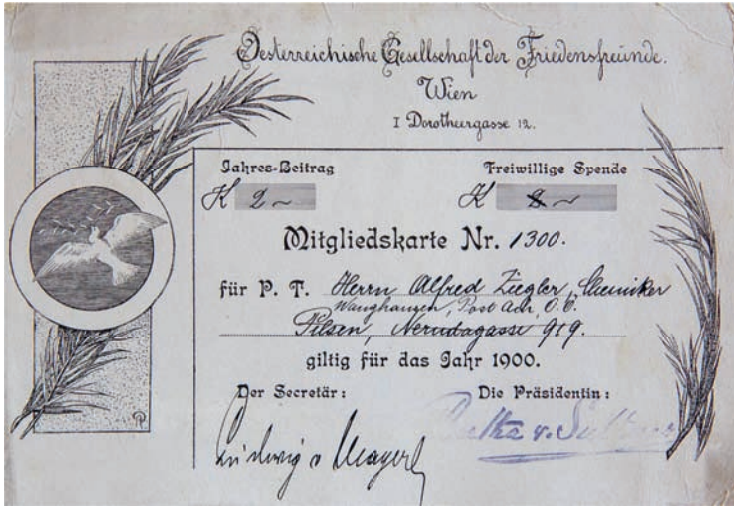 Oesterreichische Gesellschaft der Friedensfreunde.
Wien
I Dorotheergasse 12.
Jahres-Beitrag
Freiwillige Spende
K 2 ~
K 2 ~
Mitgliedskarte Nr. 1300.
für P. T. Herrn Alfred Ziegler, Chemiker
Wanghausen, Post Ach, O. Ö.
Pilsen, Nerudagasse 919.
giltig für das Jahr 1900.
Der Secretär:
Die Präsidentin:
Ludwig v Mayerl
Bertha v. Suttner